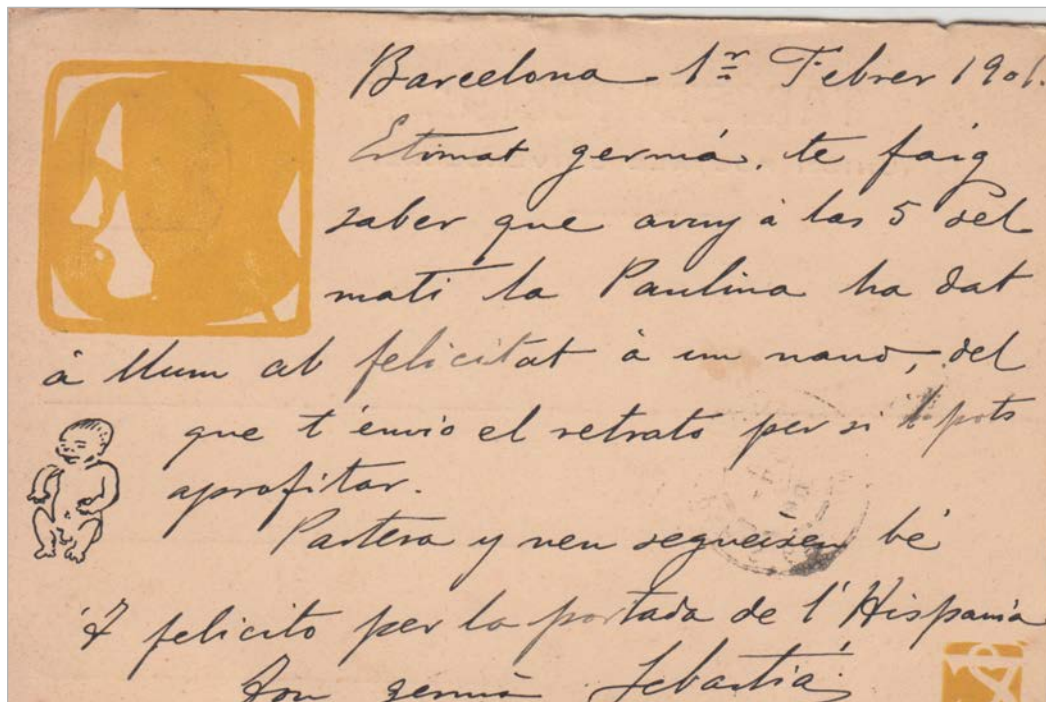 Barcelona 1r Febrer 1901.
Estimat germá, te faig
saber que avuy á las 5 del
mati la Paulina ha dat
á llum ab felicitat á un nano, del
que t'envio el retrato per si l pots
aprofitar.
Partera y nen segueixen bé
T felicito per la portada de l'Hispania
Ton germá Sebastiá